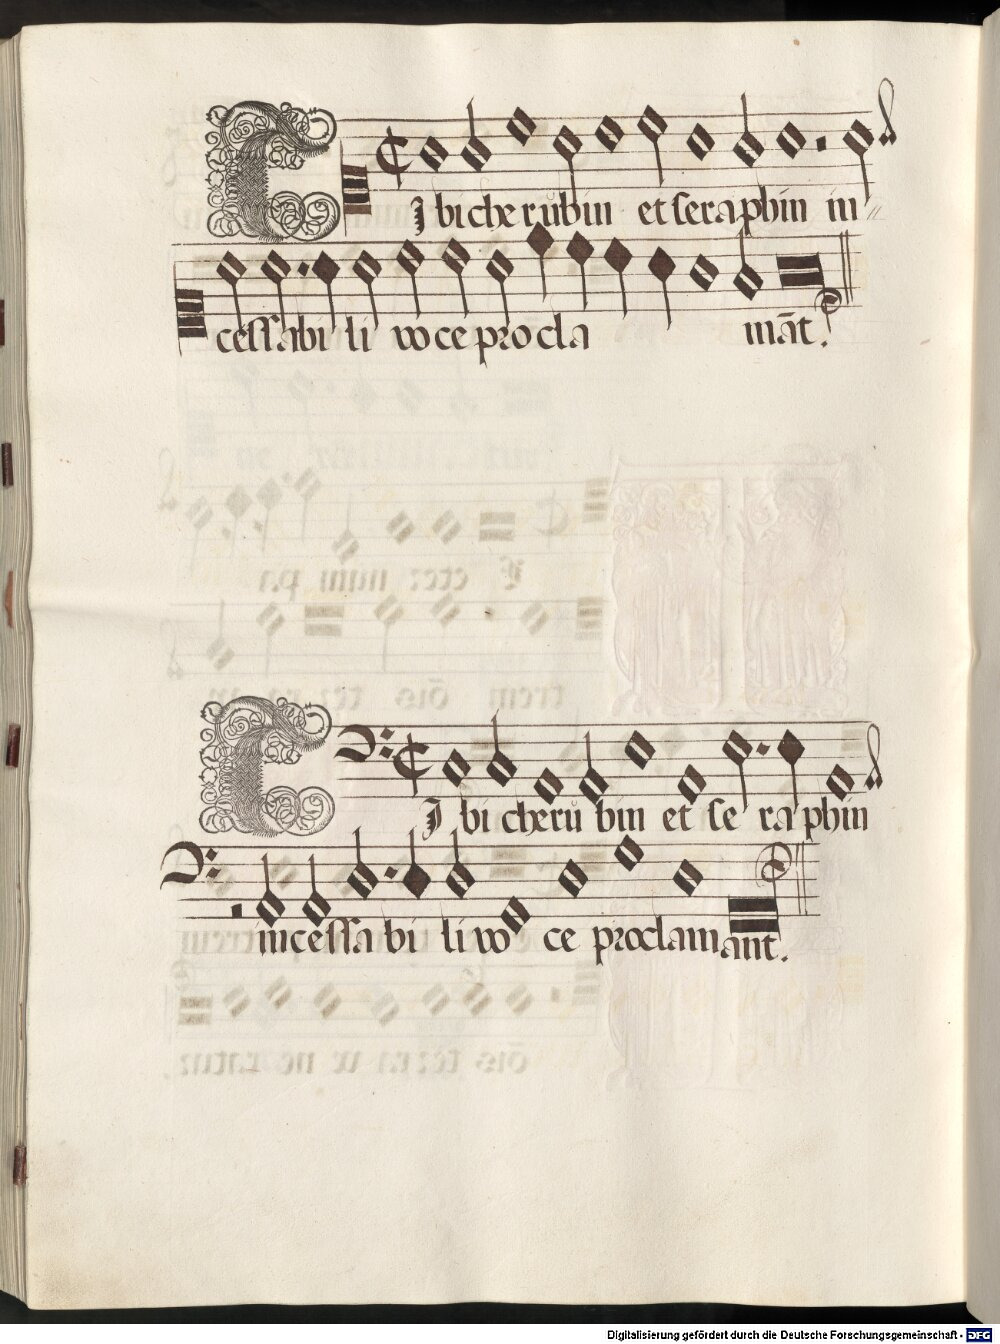 TJ bi che rubin et seraphin in
cessabi li voce procla mãt.
TJ bi cheru bin et se raphin
incessabi livo ce proclamant.
Digitalisierung gefördert durch die Deutsche Forschungsgemeinschaft - DFG